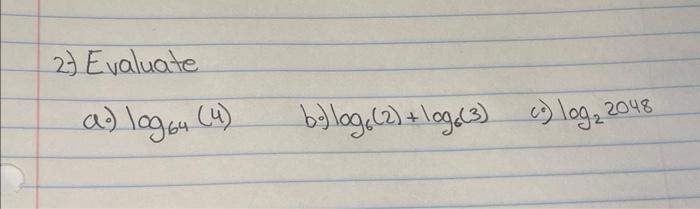 2) Evaluate
a.) log₆₄ (4) b.) log₆(2) + log₆(3) c.) log₂ 2048